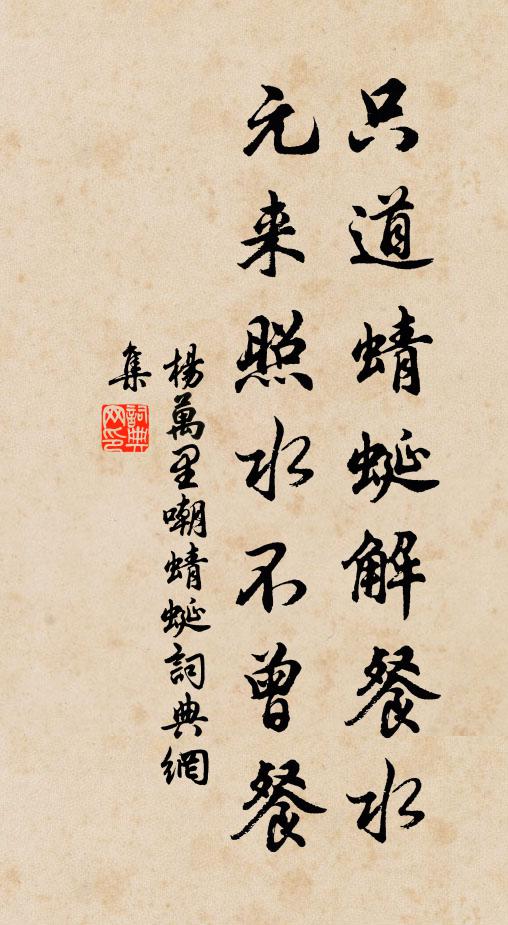 只道蜻蜓解餐水
元来照水不曾餐
楊萬里嘲蜻蜓詞典網
集
詞典网印